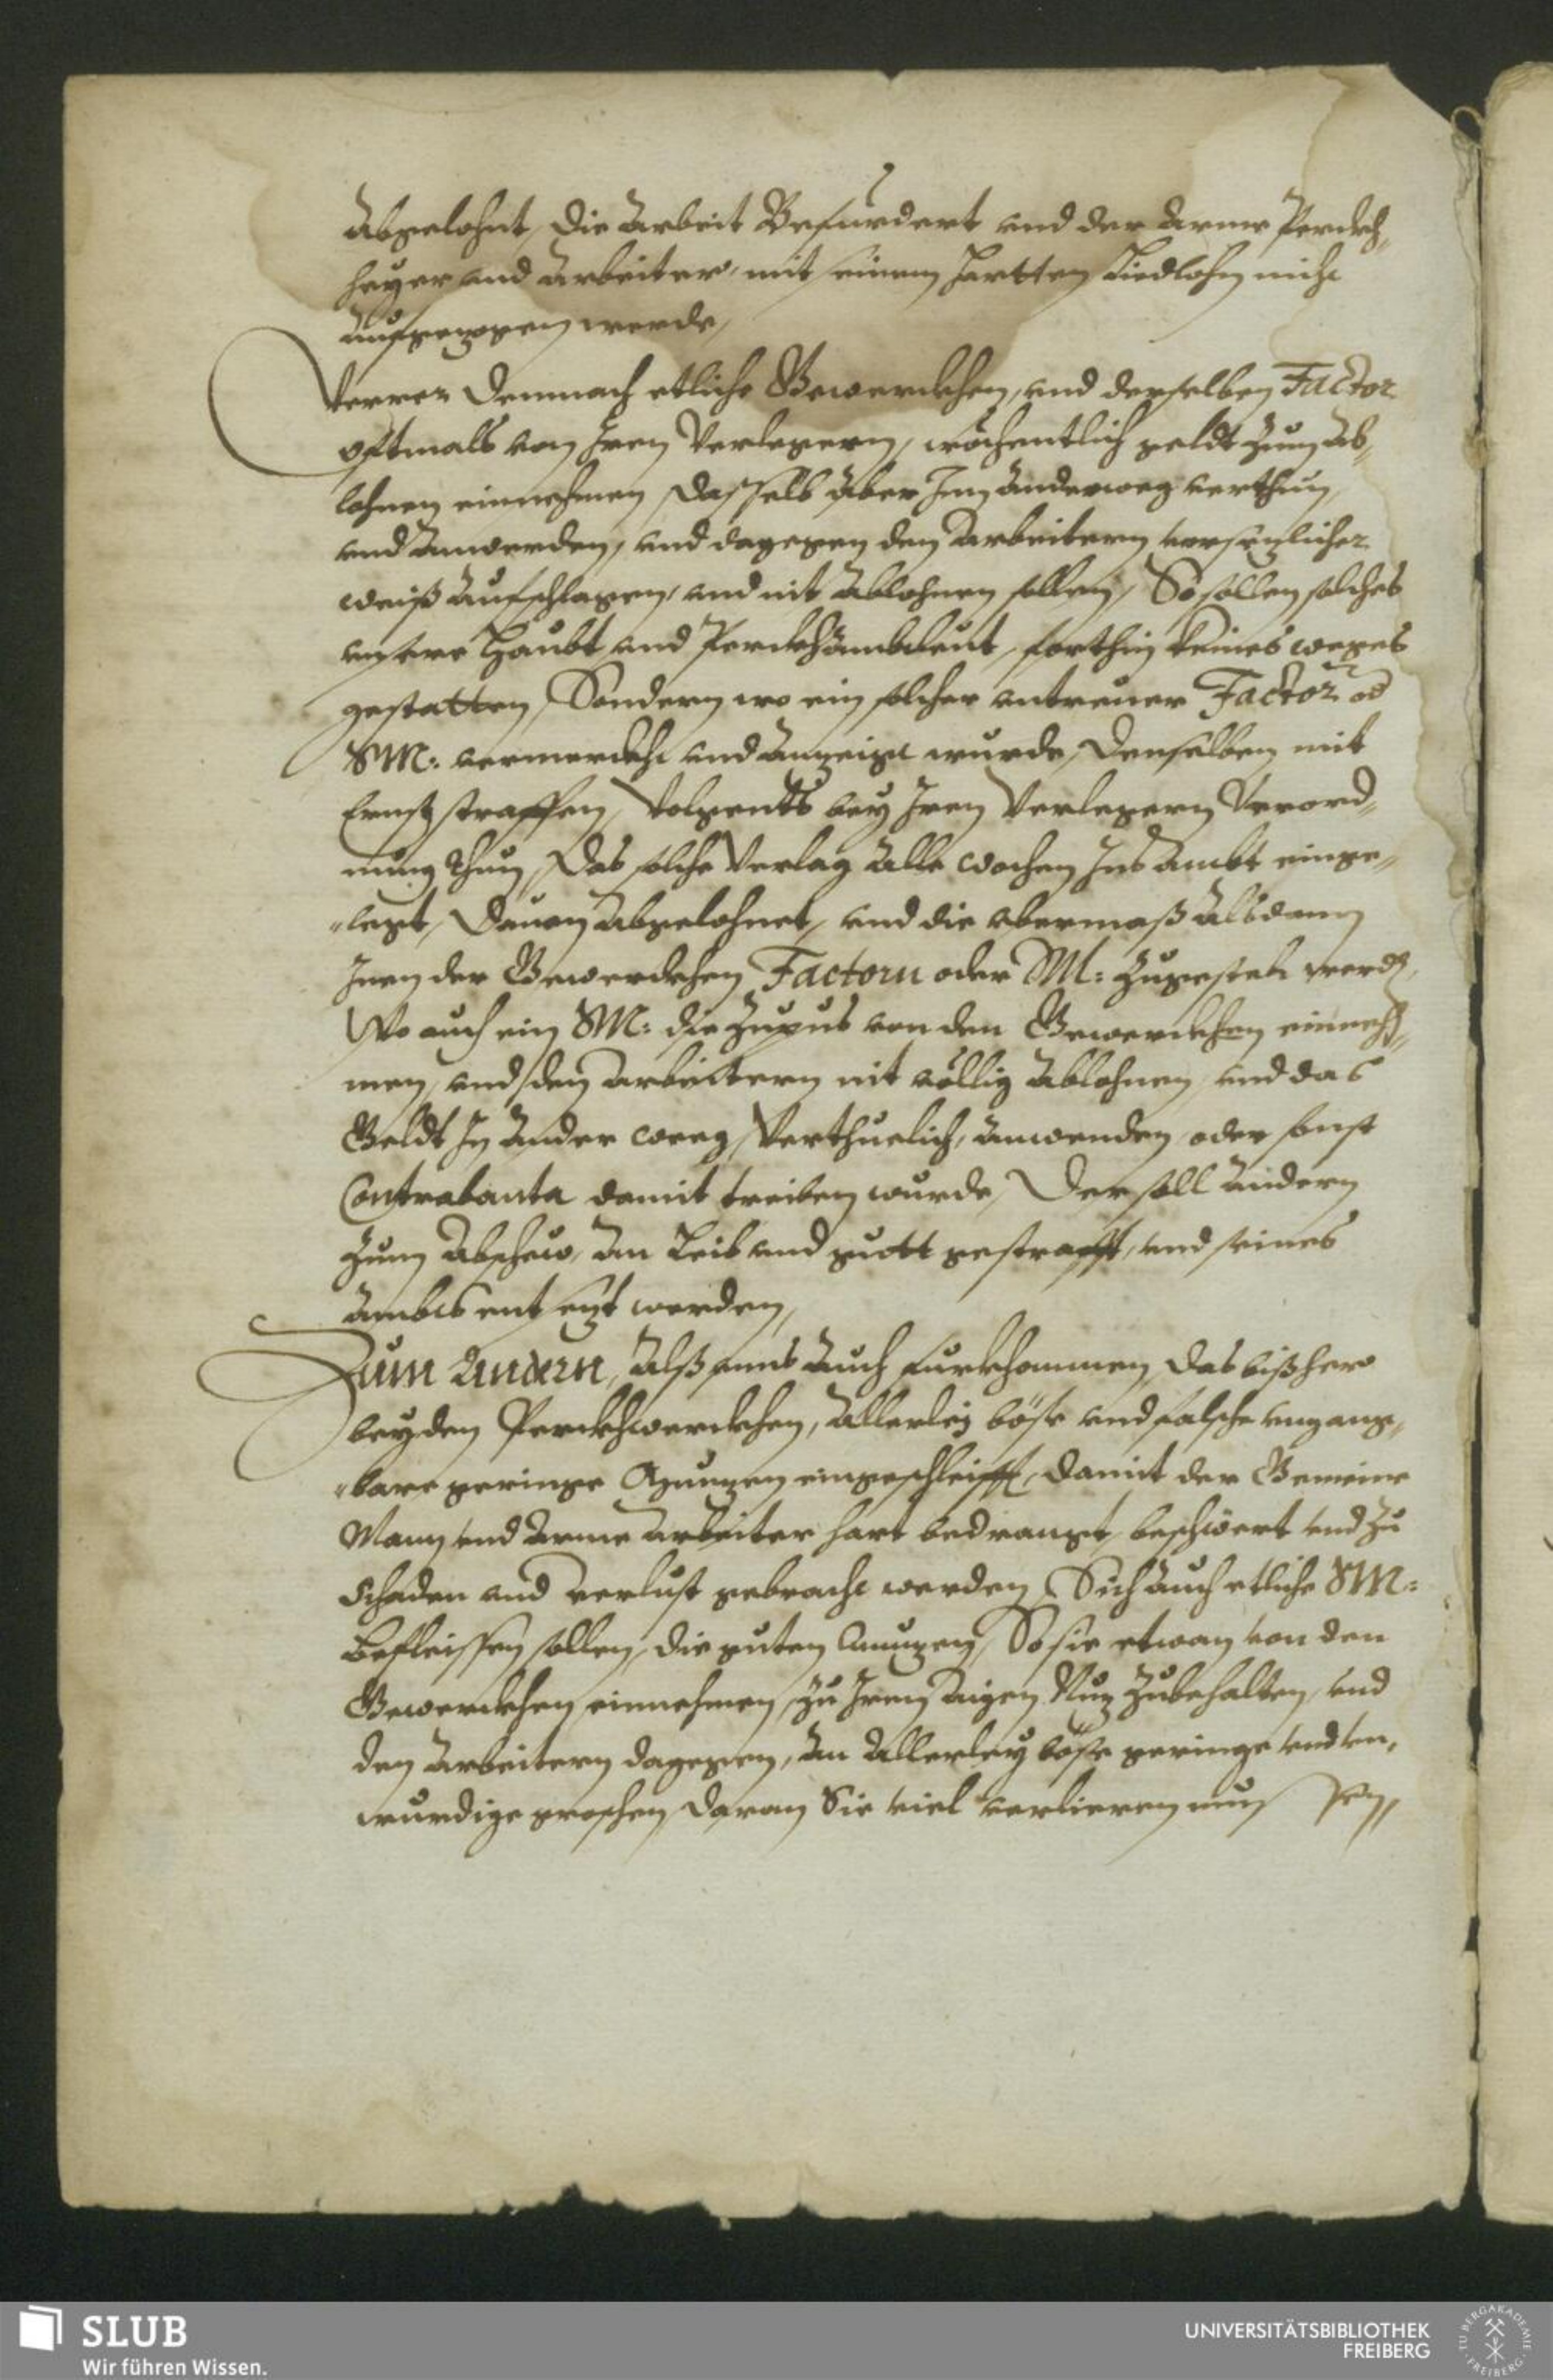 Abgelohnt, die Arbeit Befürdert vnd der Arme Perckh,
heyer vnd Arbeiter, mit seinem hartten Liedlohn nicht
Aufgezogen werde,
Verrer Demnach etliche Gewerckhen, vnd derselben Factor
offtmals von Iren Verlegern, wöchentlich geldt zum Ab,
lohnen einnehmen, dasselb aber Inn Anderweg verthun,
vnd Anwerden, vnd dagegen den Arbeitern
weiß Aufschlagen, vnd nit Ablohnen sollen, So sollen solches
vnsere Haubt vnd Perckhämbtleut, forthin keines weges
gestatten, Sondern wo ein solcher vntreuer Factor od
SM: vermerckht vnd Anzeigt wurde, Denselben mit
Ernst straffen, Volgendts bey Iren Verlegern Verord,,
nung thun, Das solche Verlag Alle wochen Ins Ambt einge,,
,,legt, Dauon Abgelohnet, vnd die vbermaß Alsdann
Inen der Gewerckhen Factorn oder SM: Zugestelt werd,
Wo auch ein SM: die Zupus von den Gewerckhen einneh,,
men, vnd den Arbeittern nit völlig Ablohnen, vnd das
Geldt In Ander weeg, Verthuelich, Anwenden, oder sonst
Contrabanta damit treiben wurde, Der soll Andern
Zum Abschew, An Leib vnd guett gestrafft, vnd seines
Ambts entsezt werden,
Zum Andern, Alß vnns Auch fürkhommen, Das bißhero
bey den Perckhwerckhen, Allerley böse vnd falsche vngang,,
,,bare geringe Münzen eingeschleifft, damit der Gemeine
Mann vnd Arme Arbeiter hart bedrangt, beschwert vnd Zu
schaden vnd verlust gebracht werden, Sich Auch etliche SM:
Befleissen sollen, die guten Münzen, So sie etwan von den
Gewerckhen einnehmen, Zu Iren Aigen Nuz Zubehalten, vnd
den Arbeitern dagegen, An Allerley böse geringe vnd vn,
wurdige groschen, Daran Sie viel verlieren mus sen,,
SLUB
Wir führen Wissen.
UNIVERSITÄTSBIBLIOTHEK
FREIBERG
TU BERGAKADEMIE
FREIBERG